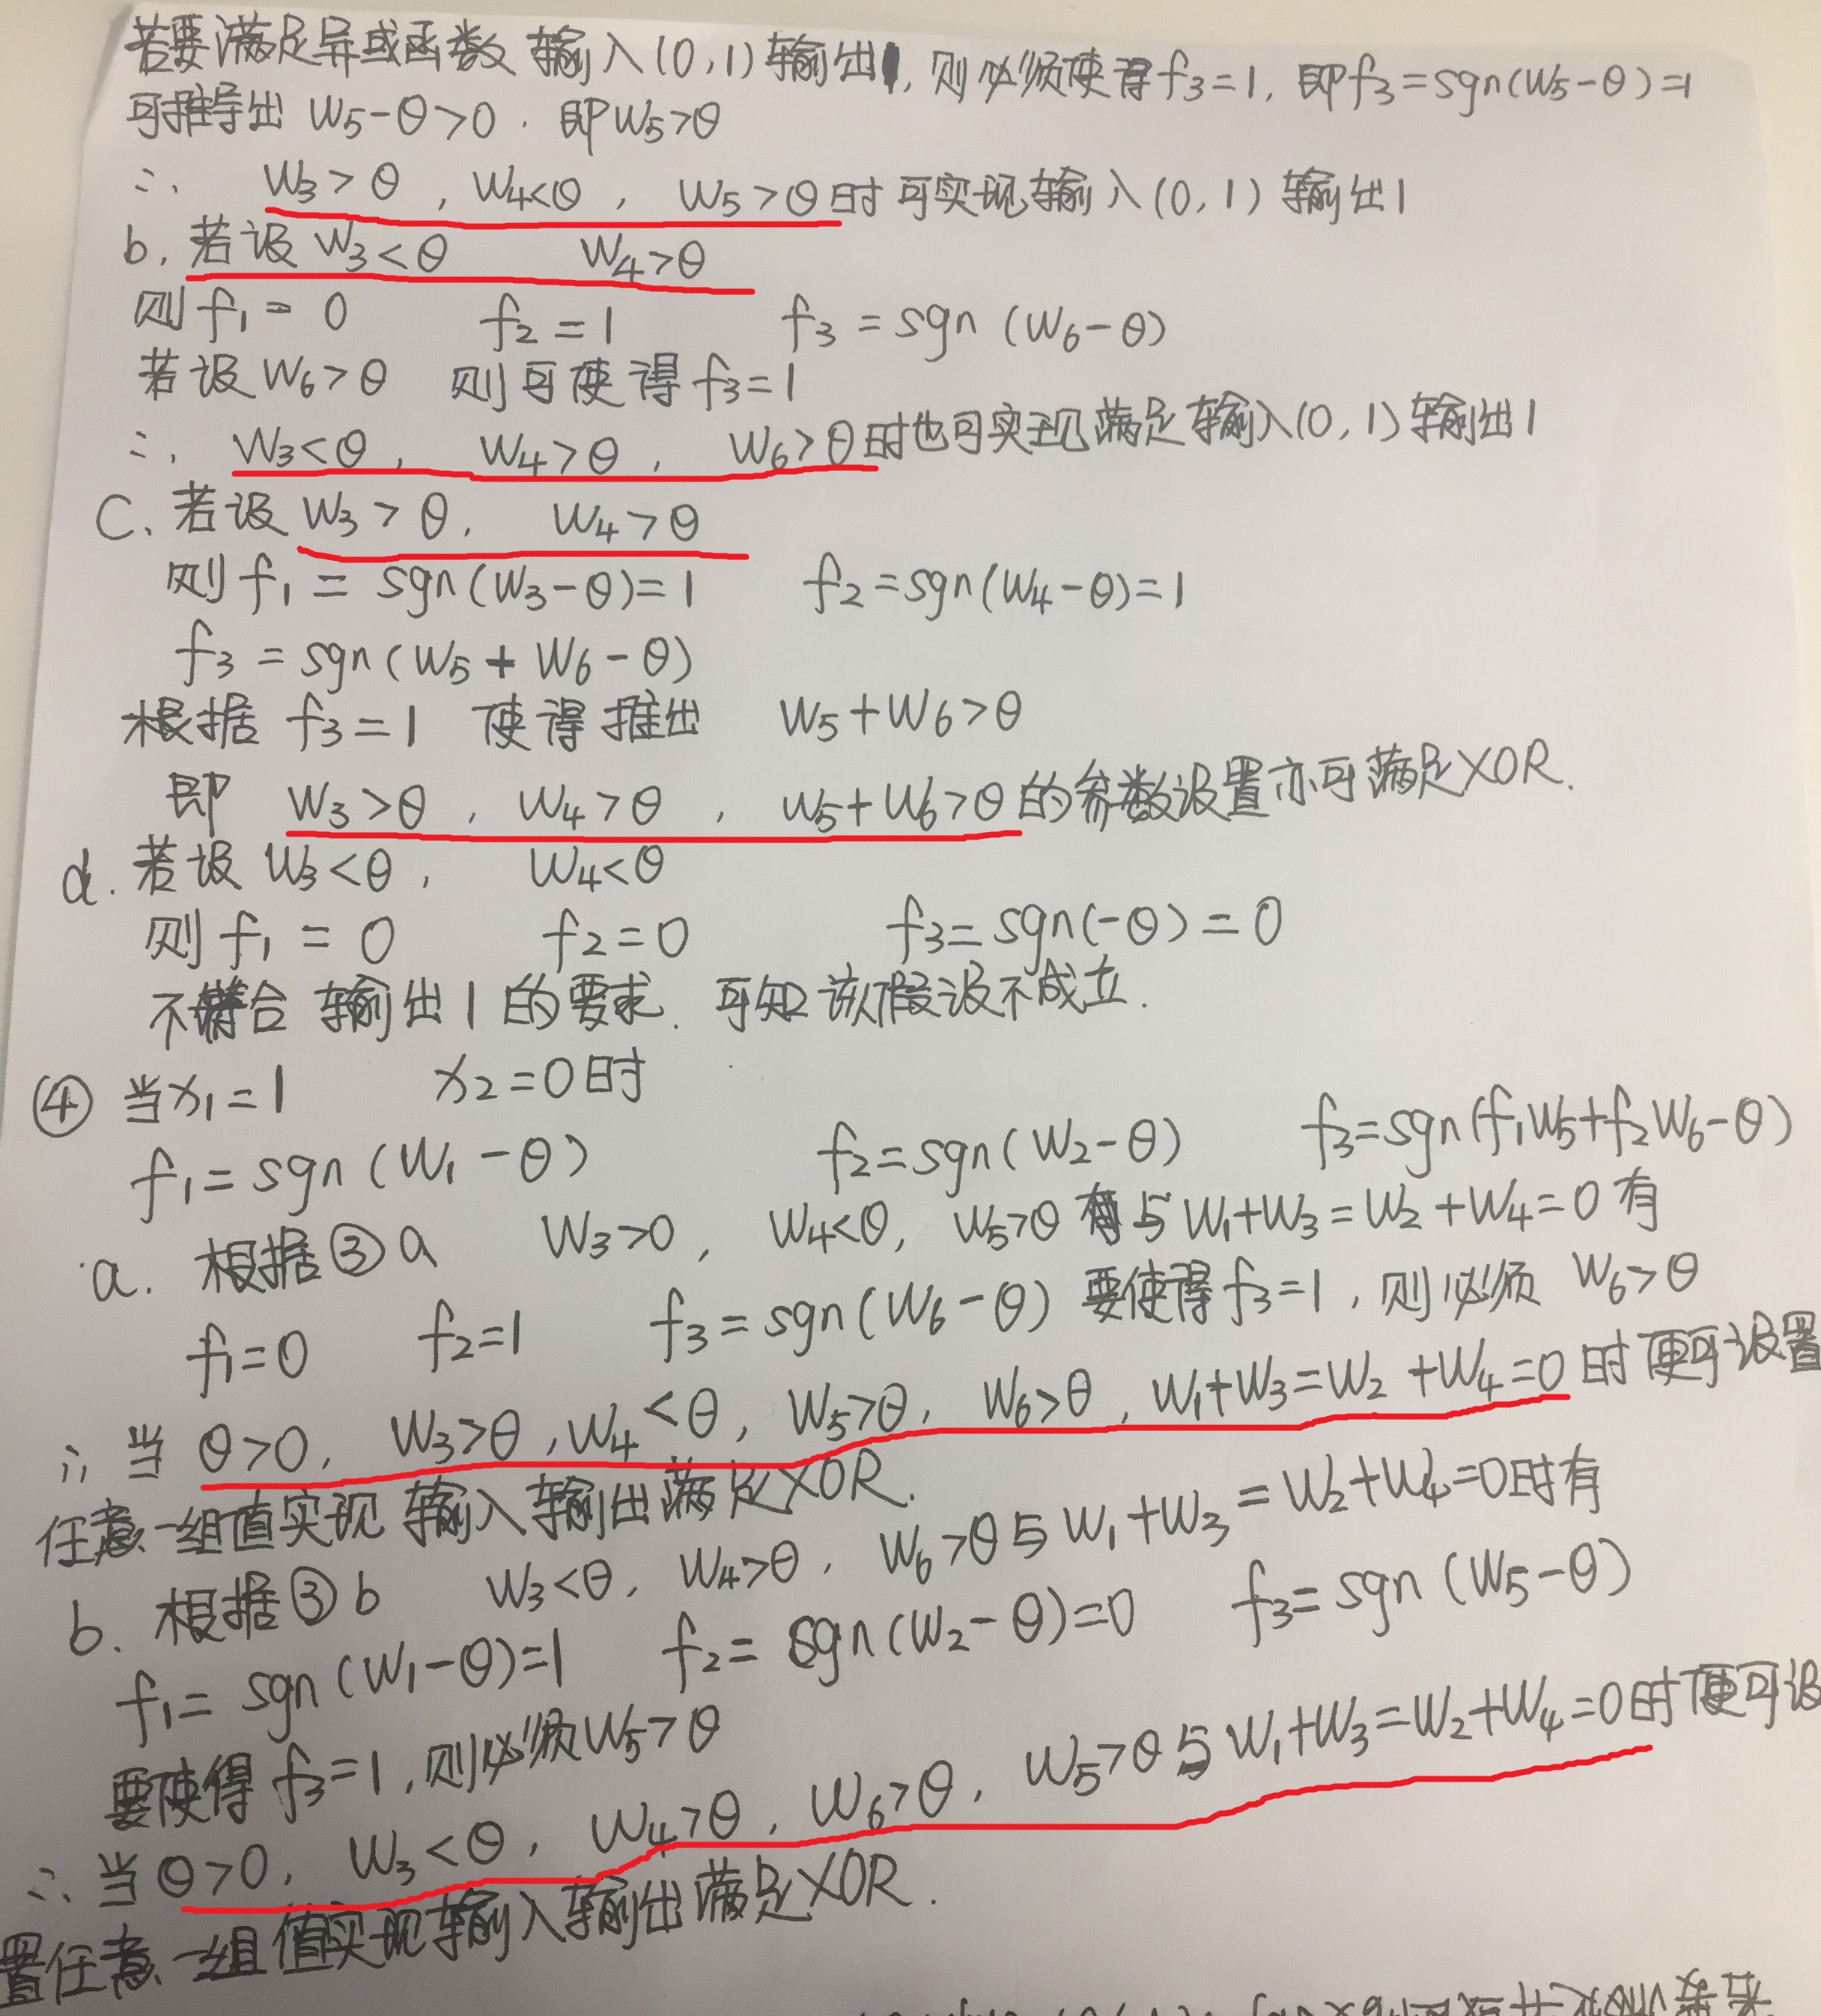 若要满足异或函数 输入(0,1)输出1, 则必须使得f₃=1, 即f₃=sgn(W₅-θ)=1
可推导出 W₅-θ>0. 即W₅>θ
∴ W₃>θ, W₄<θ, W₅>θ时可实现输入(0,1)输出1
b. 若设 W₃<θ W₄>θ
则 f₁=0 f₂=1 f₃=sgn(W₆-θ)
若设W₆>θ 则可使得f₃=1
∴ W₃<θ, W₄>θ, W₆>θ时也可实现满足输入(0,1)输出1
C. 若设 W₃>θ, W₄>θ
则 f₁=sgn(W₃-θ)=1 f₂=sgn(W₄-θ)=1
f₃=sgn(W₅+W₆-θ)
根据 f₃=1 使得推出 W₅+W₆>θ
即 W₃>θ, W₄>θ, W₅+W₆>θ的参数设置亦可满足XOR.
d. 若设 W₃<θ, W₄<θ
则 f₁=0 f₂=0 f₃=sgn(-θ)=0
不符合 输出1的要求. 可知该假设不成立.
④ 当x₁=1 x₂=0时
f₁=sgn(W₁-θ) f₂=sgn(W₂-θ) f₃=sgn(f₁W₅+f₂W₆-θ)
a. 根据③a W₃>0, W₄<θ, W₅>θ 与W₁+W₃=W₂+W₄=0有
f₁=0 f₂=1 f₃=sgn(W₆-θ) 要使得f₃=1, 则必须 W₆>θ
∴ 当 θ>0, W₃>θ, W₄<θ, W₅>θ, W₆>θ, W₁+W₃=W₂+W₄=0时便可设置
任意一组值实现 输入输出满足XOR.
b. 根据③b W₃<θ, W₄>θ, W₆>θ与W₁+W₃=W₂+W₄=0时有
f₁=sgn(W₁-θ)=1 f₂=sgn(W₂-θ)=0 f₃=sgn(W₅-θ)
要使得 f₃=1, 则必须W₅>θ
∴ 当θ>0, W₃<θ, W₄>θ, W₆>θ, W₅>θ与W₁+W₃=W₂+W₄=0时便可设
置任意一组值实现输入输出满足XOR.